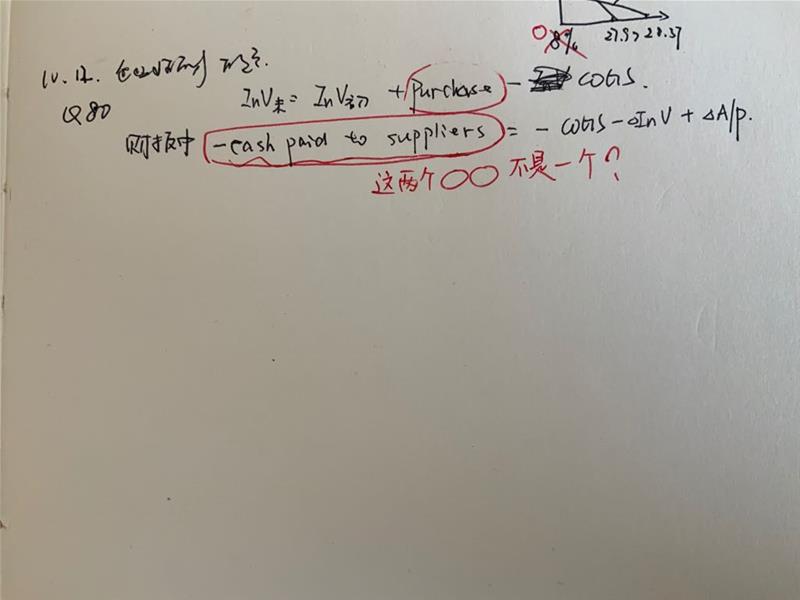 8% 27.9> 28.37
Q80
InV末= InV初 + purchase - COGS.
财报中 -cash paid to suppliers = - COGS - ΔInV + ΔA/p.
这两个○○ 不是一个?